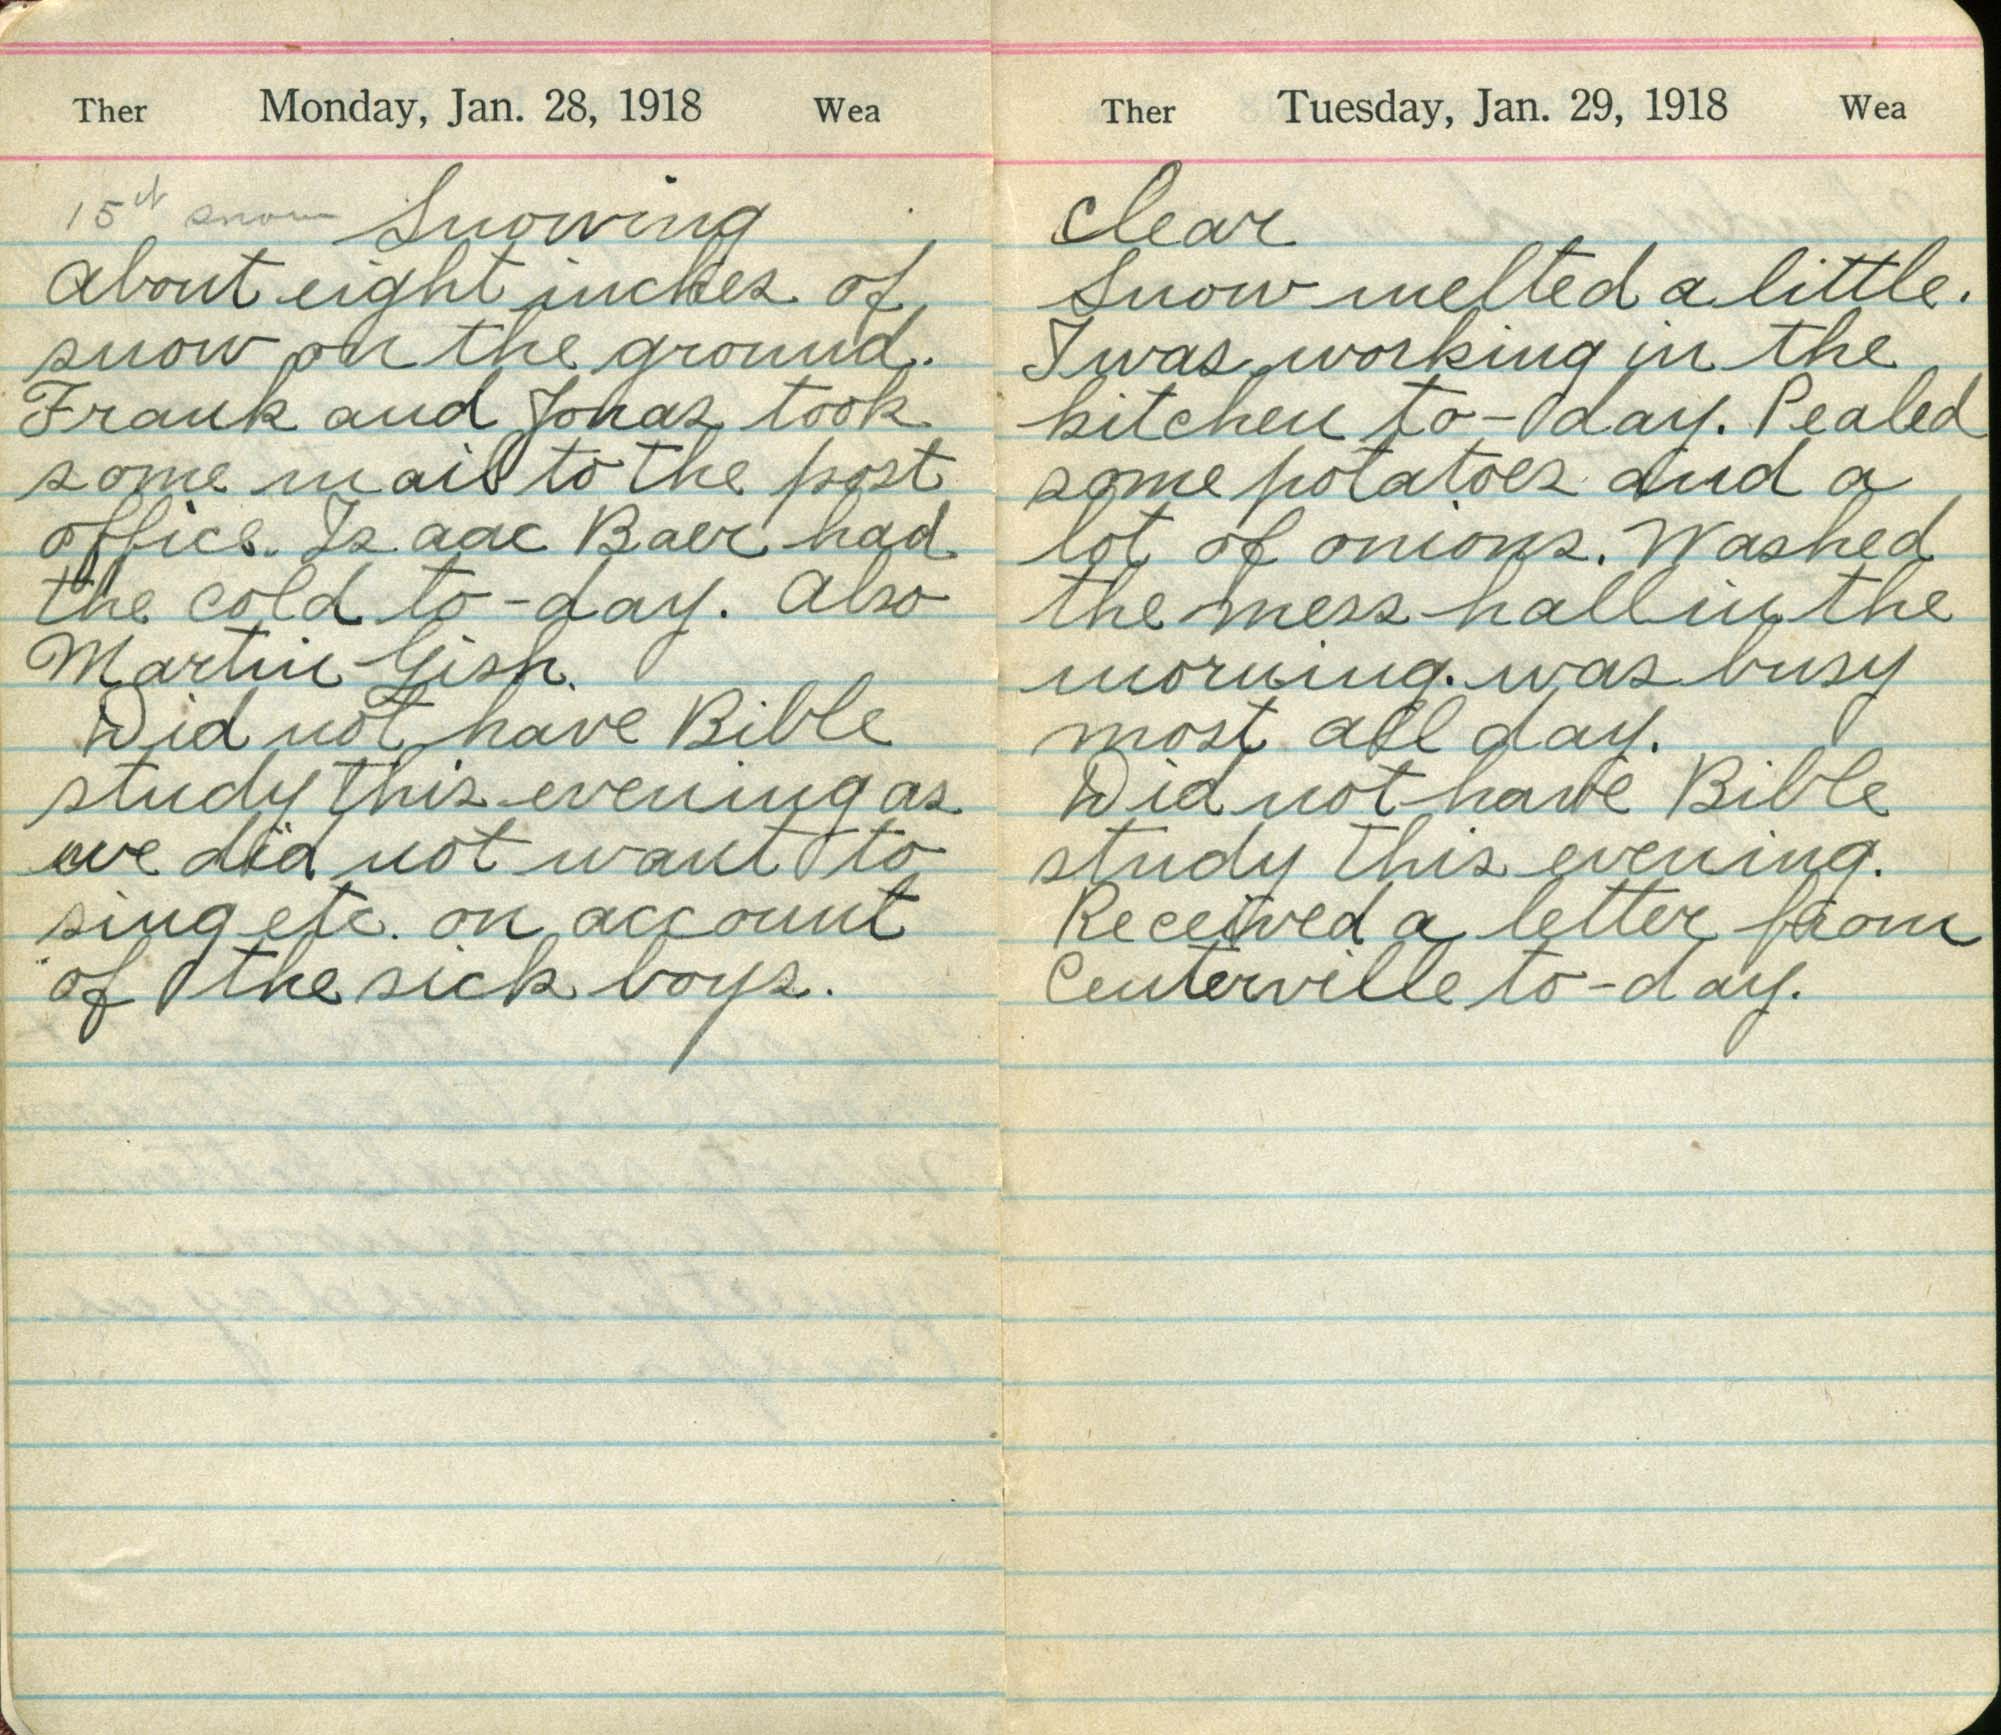 Ther Monday, Jan. 28, 1918 Wea
15th snow Snowing
About eight inches of
snow on the ground.
Frank and Jonas took
some mail to the post
office. Isaac Baer had
the cold to-day. Also
Martin Gish.
Did not have Bible
study this evening as
we did not want to
sing etc. on account
of the sick boys.
Ther Tuesday, Jan. 29, 1918 Wea
Clear
Snow melted a little.
I was working in the
kitchen to-day. Pealed
some potatoes and a
lot of onions. Washed
the mess hall in the
morning. was busy
most all day.
Did not have Bible
study this evening.
Received a letter from
Centerville to-day.